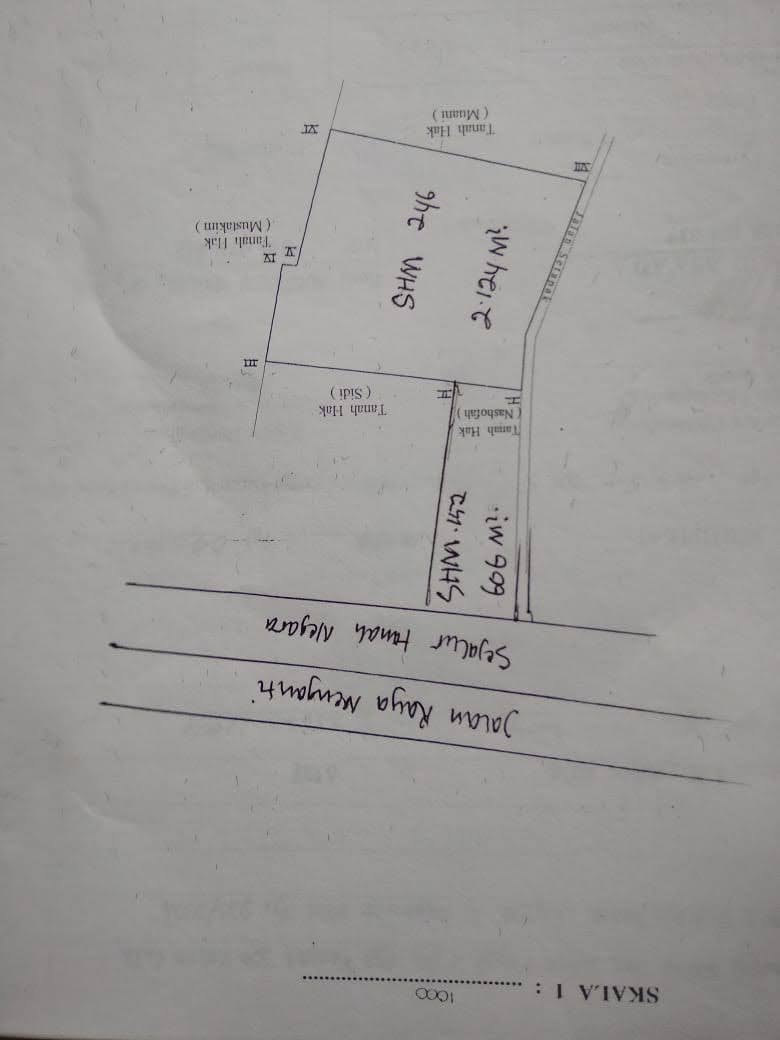 SKALA 1 : 1000
Jalan Raya Menganti
Sejalur tanah Negara
606 M²
SHM. 152
Tanah Hak
( Nashofah )
I
II
Tanah Hak
( Sidi )
III
2.124 M²
SHM 246
Jalan Setapak
IV
V
Tanah Hak
( Mustakim )
VII
Tanah Hak
( Muani )
VI